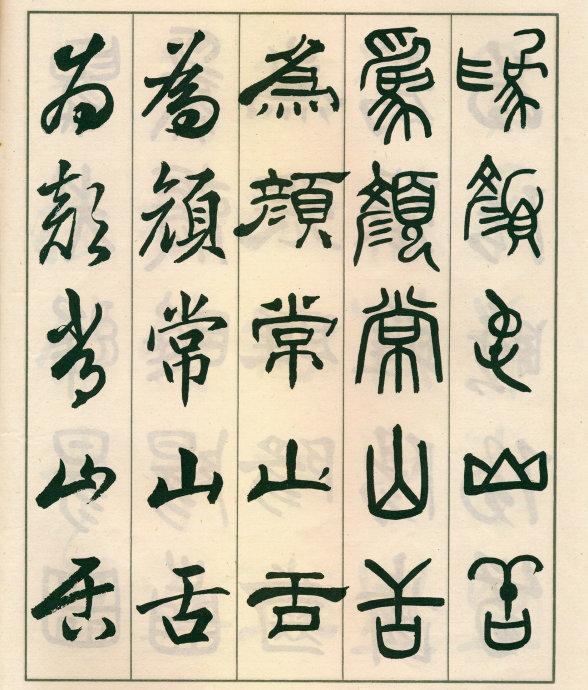 為顔常山舌
為顔常山舌
為顔常山舌
為顔常山舌
為顔常山舌